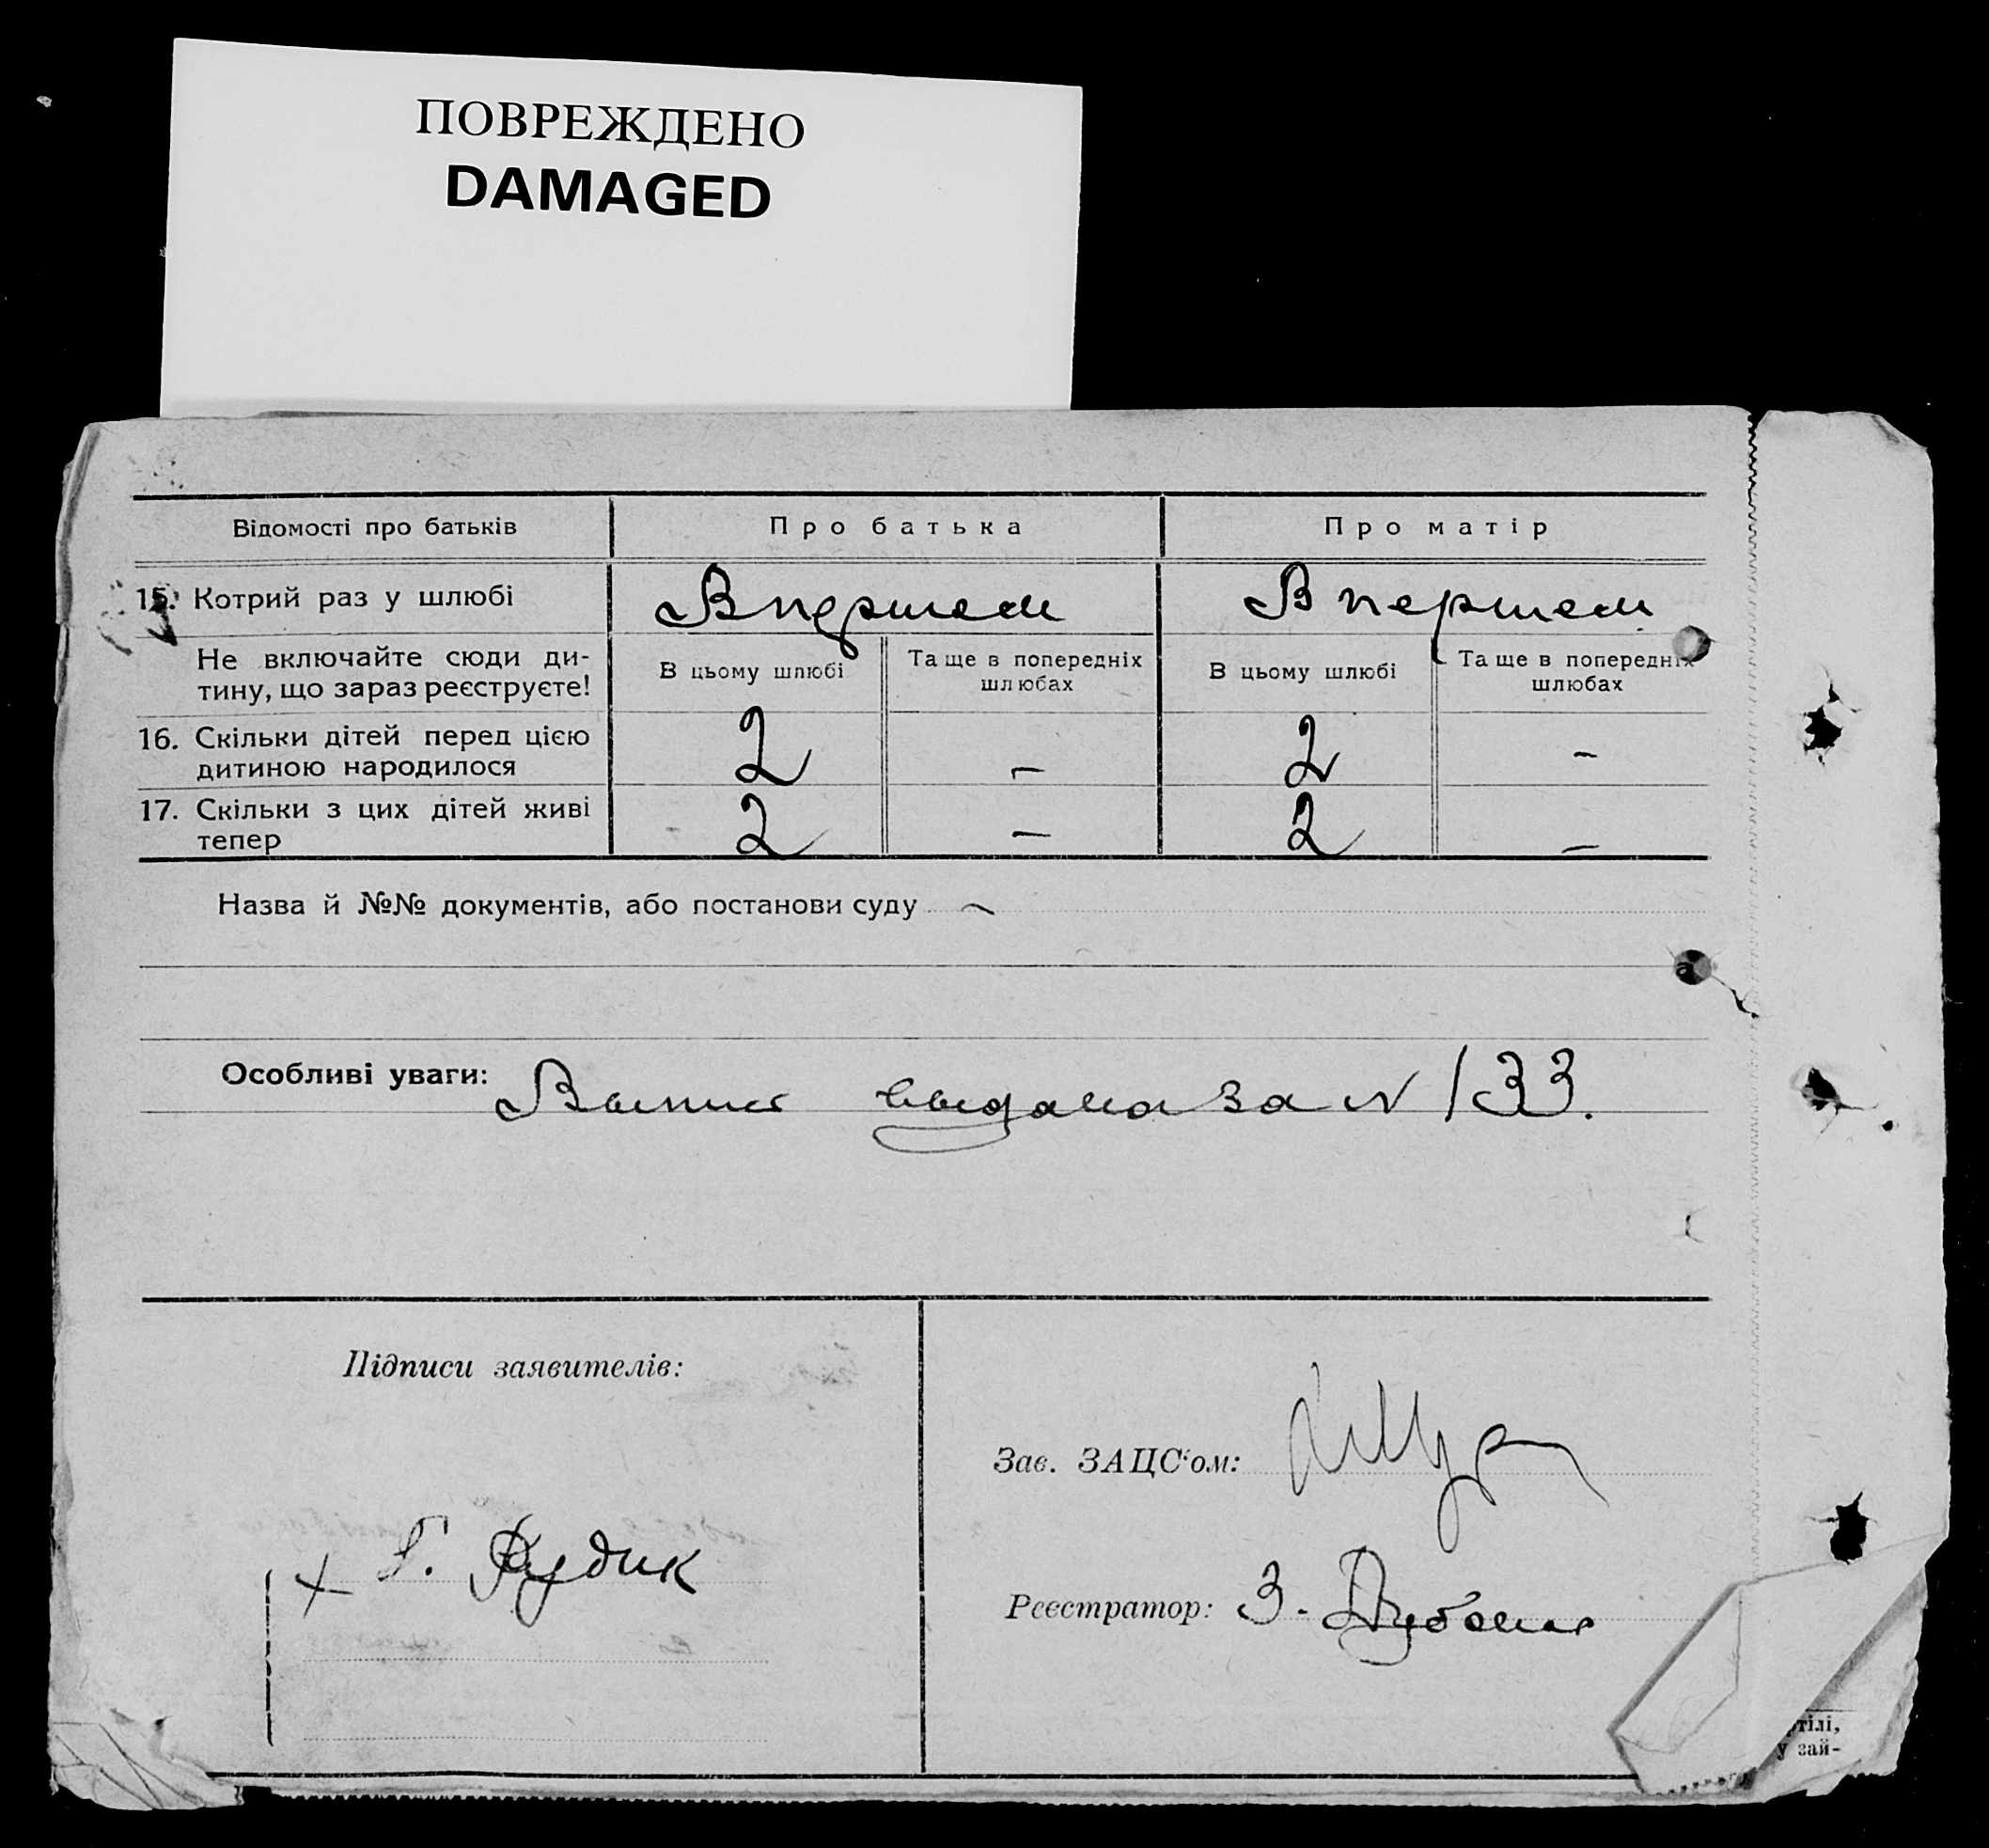 ПОВРЕЖДЕНО
DAMAGED
Відомості про батьків
Про батька
Про матір
15. Котрий раз у шлюбі
В першем
В першем
Не включайте сюди ди-
тину, що зараз реєструєте!
В цьому шлюбі
Та ще в попередніх
шлюбах
В цьому шлюбі
Та ще в попередніх
шлюбах
16. Скільки дітей перед цією
дитиною народилося
2
–
2
–
17. Скільки з цих дітей живі
тепер
2
–
2
–
Назва й №№ документів, або постанови суду –
Особливі уваги: выдана за № 133.
Підписи заявителів:
Зав. ЗАЦС'ом:
+ Г. Рудик
Реєстратор: З.
тілі,
у зай-